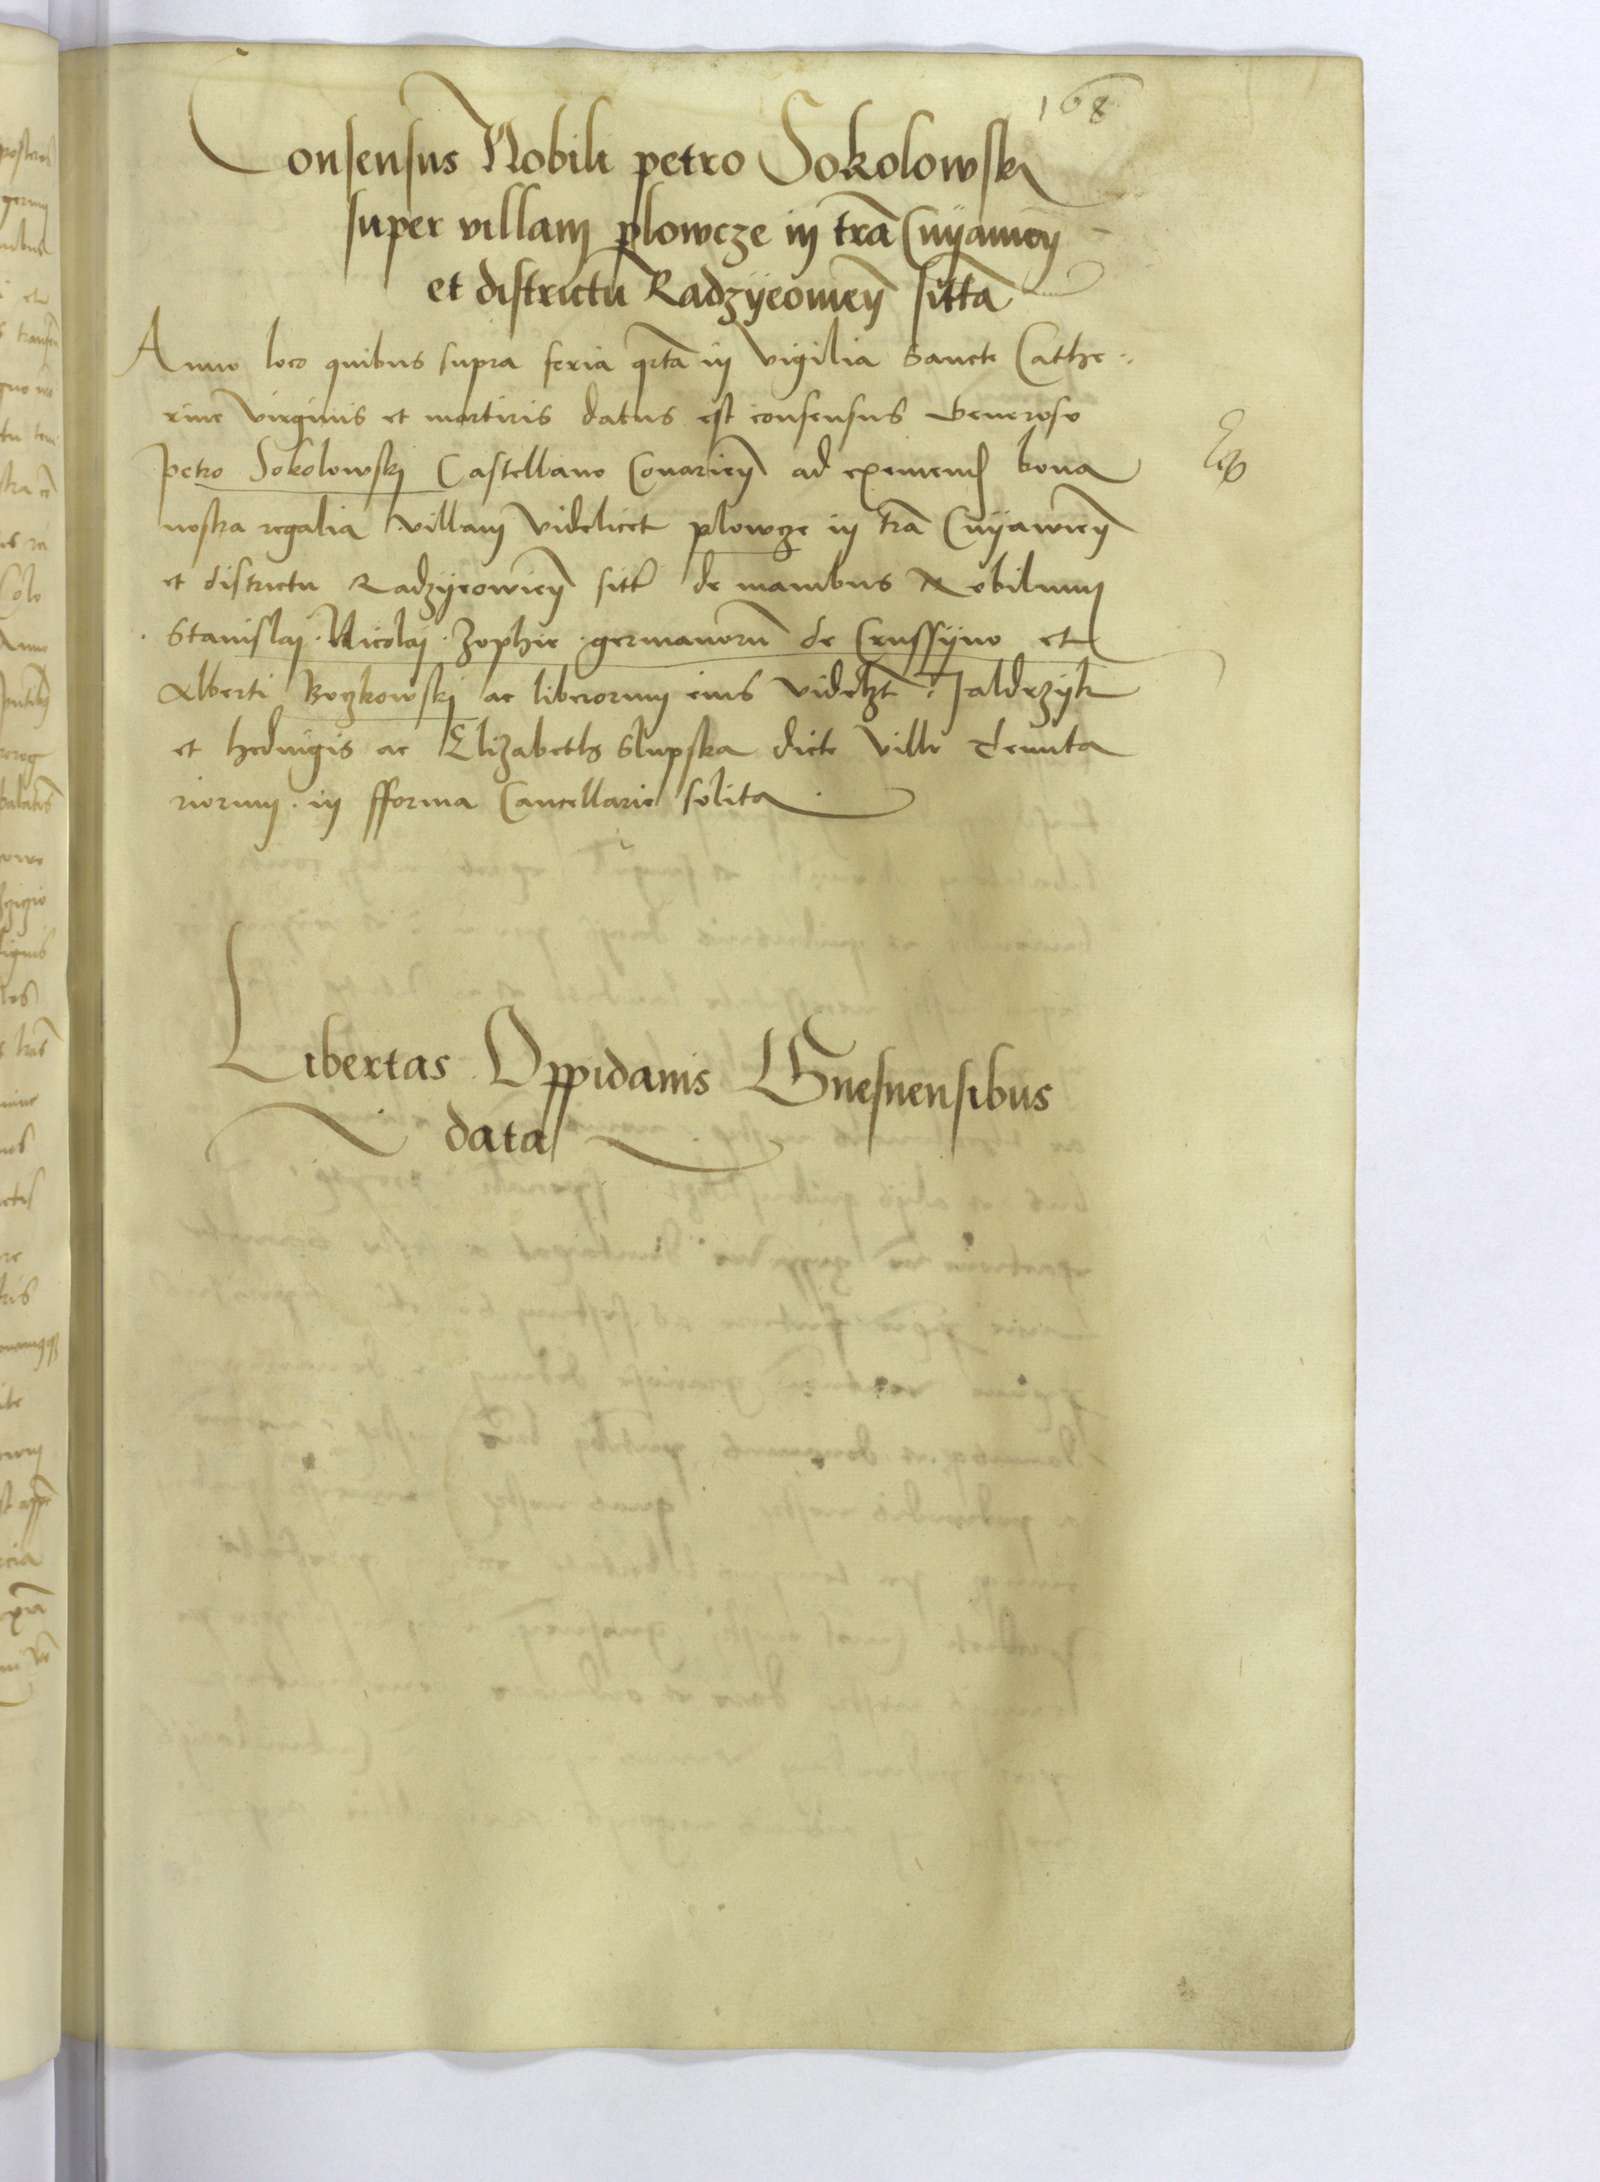 168
Consensus Nobili petro Sokolowski
super villam plowcze in tra Cuyavien
et districtu Radzyeovien sitta
Anno loco quibus supra feria qrta in vigilia Sancte Cathe
rine virginis et martiris datus est consensus Generoso
petro Sokolowski Castellano Conarien ad eximend bona
nostra regalia villam videlicet plowcze in tra Cuyavien
et districtu Radzyeovien sitt de manibus Nobilium
Stanislai Nicolai Zophie germanorum de Crussyno et
Alberti ac liberorum eius videlzt
et hedvigis ac Elizabeth Slupska dicte ville tenuta
riorum in fforma Cancellarie solita
Libertas Oppidanis Gnesnensibus
data